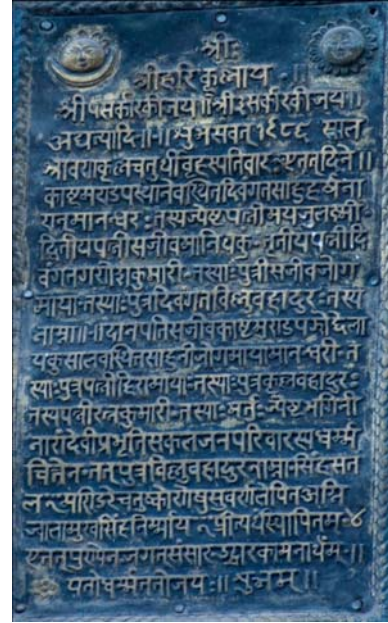 श्रीः
श्री हरि कूलाय ॥
श्री ५ सर्कारकी जय ॥ श्री ३ सर्कारकी जय ॥
अद्यत्यादि ॥ शुभ सवत् १९८८ साल
श्रावण कृष्ण चतुर्थी वृहस्पतिवार एतत् दिने ॥
काष्टमराडपस्थाने वस्थित दिवंगत साहु हर्षना
रायनमानन्धर : तस्य ज्येष्ठ पत्नी मयजुलक्ष्मी
द्वितीय पत्नी सजीव मानियक - तृतीय पत्नी दि
वंगत गरोशकुमारी - तस्याः पुत्री सजीव जोग
माया - तस्याः पुत्र दिवंगत विलुवहादुर : तस्य
नाम्ना ॥ दानपति सजीव काष्टमराडप
सजीव साहुनी जोगमाया मानन्धरी - त
स्याः पुत्र पत्नी हिरामाया - तस्याः पुत्र कूलवहादुर :
तस्य पत्नी रत्नकुमारी - तस्याः ज्येष्ठ भगिनी
नारांदेवी प्रभृति सकल जन परिवारस्य धर्म्म
चित्तेन पुत्र विलुवहादुर नाम्ना सिंहसत
चतुष्कोणेषु सुवर्ण लेपित अग्नि
ज्वाला मुख सिंह निर्माय प्रीत्यर्थ स्थापितम् - ४
एतत् पुण्येन जगत संसार उद्धार कामनार्थम् ॥
यतो धर्म्म ततो जय : ॥ शुभम् ॥